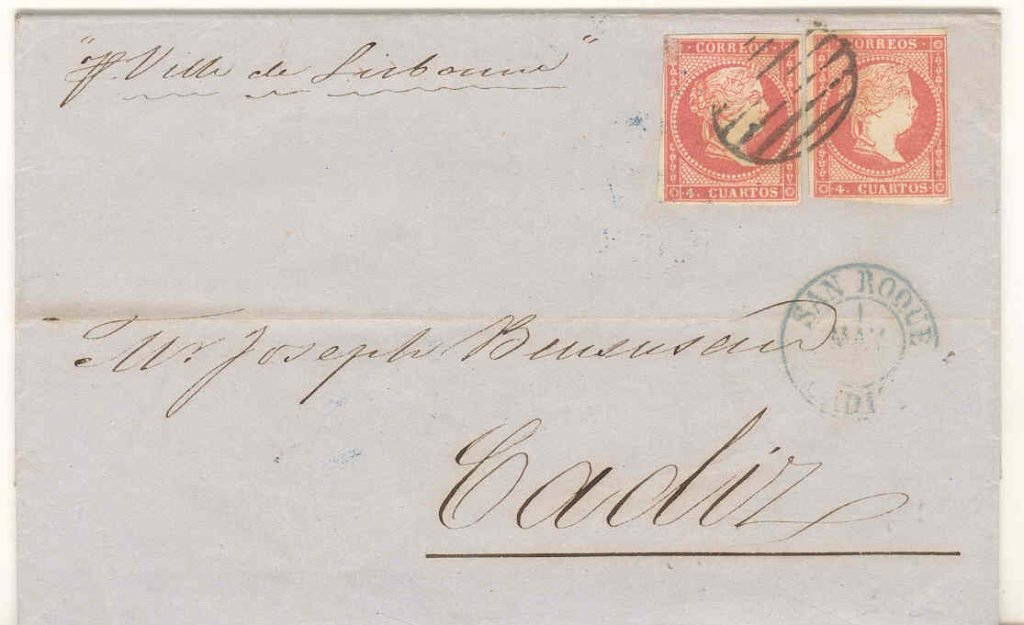 "pr. Ville de Lisbonne"
CORREOS
4. CUARTOS
CORREOS
4. CUARTOS
SAN ROQUE
1
MAY
Mr Joseph Bensusan
Cadiz